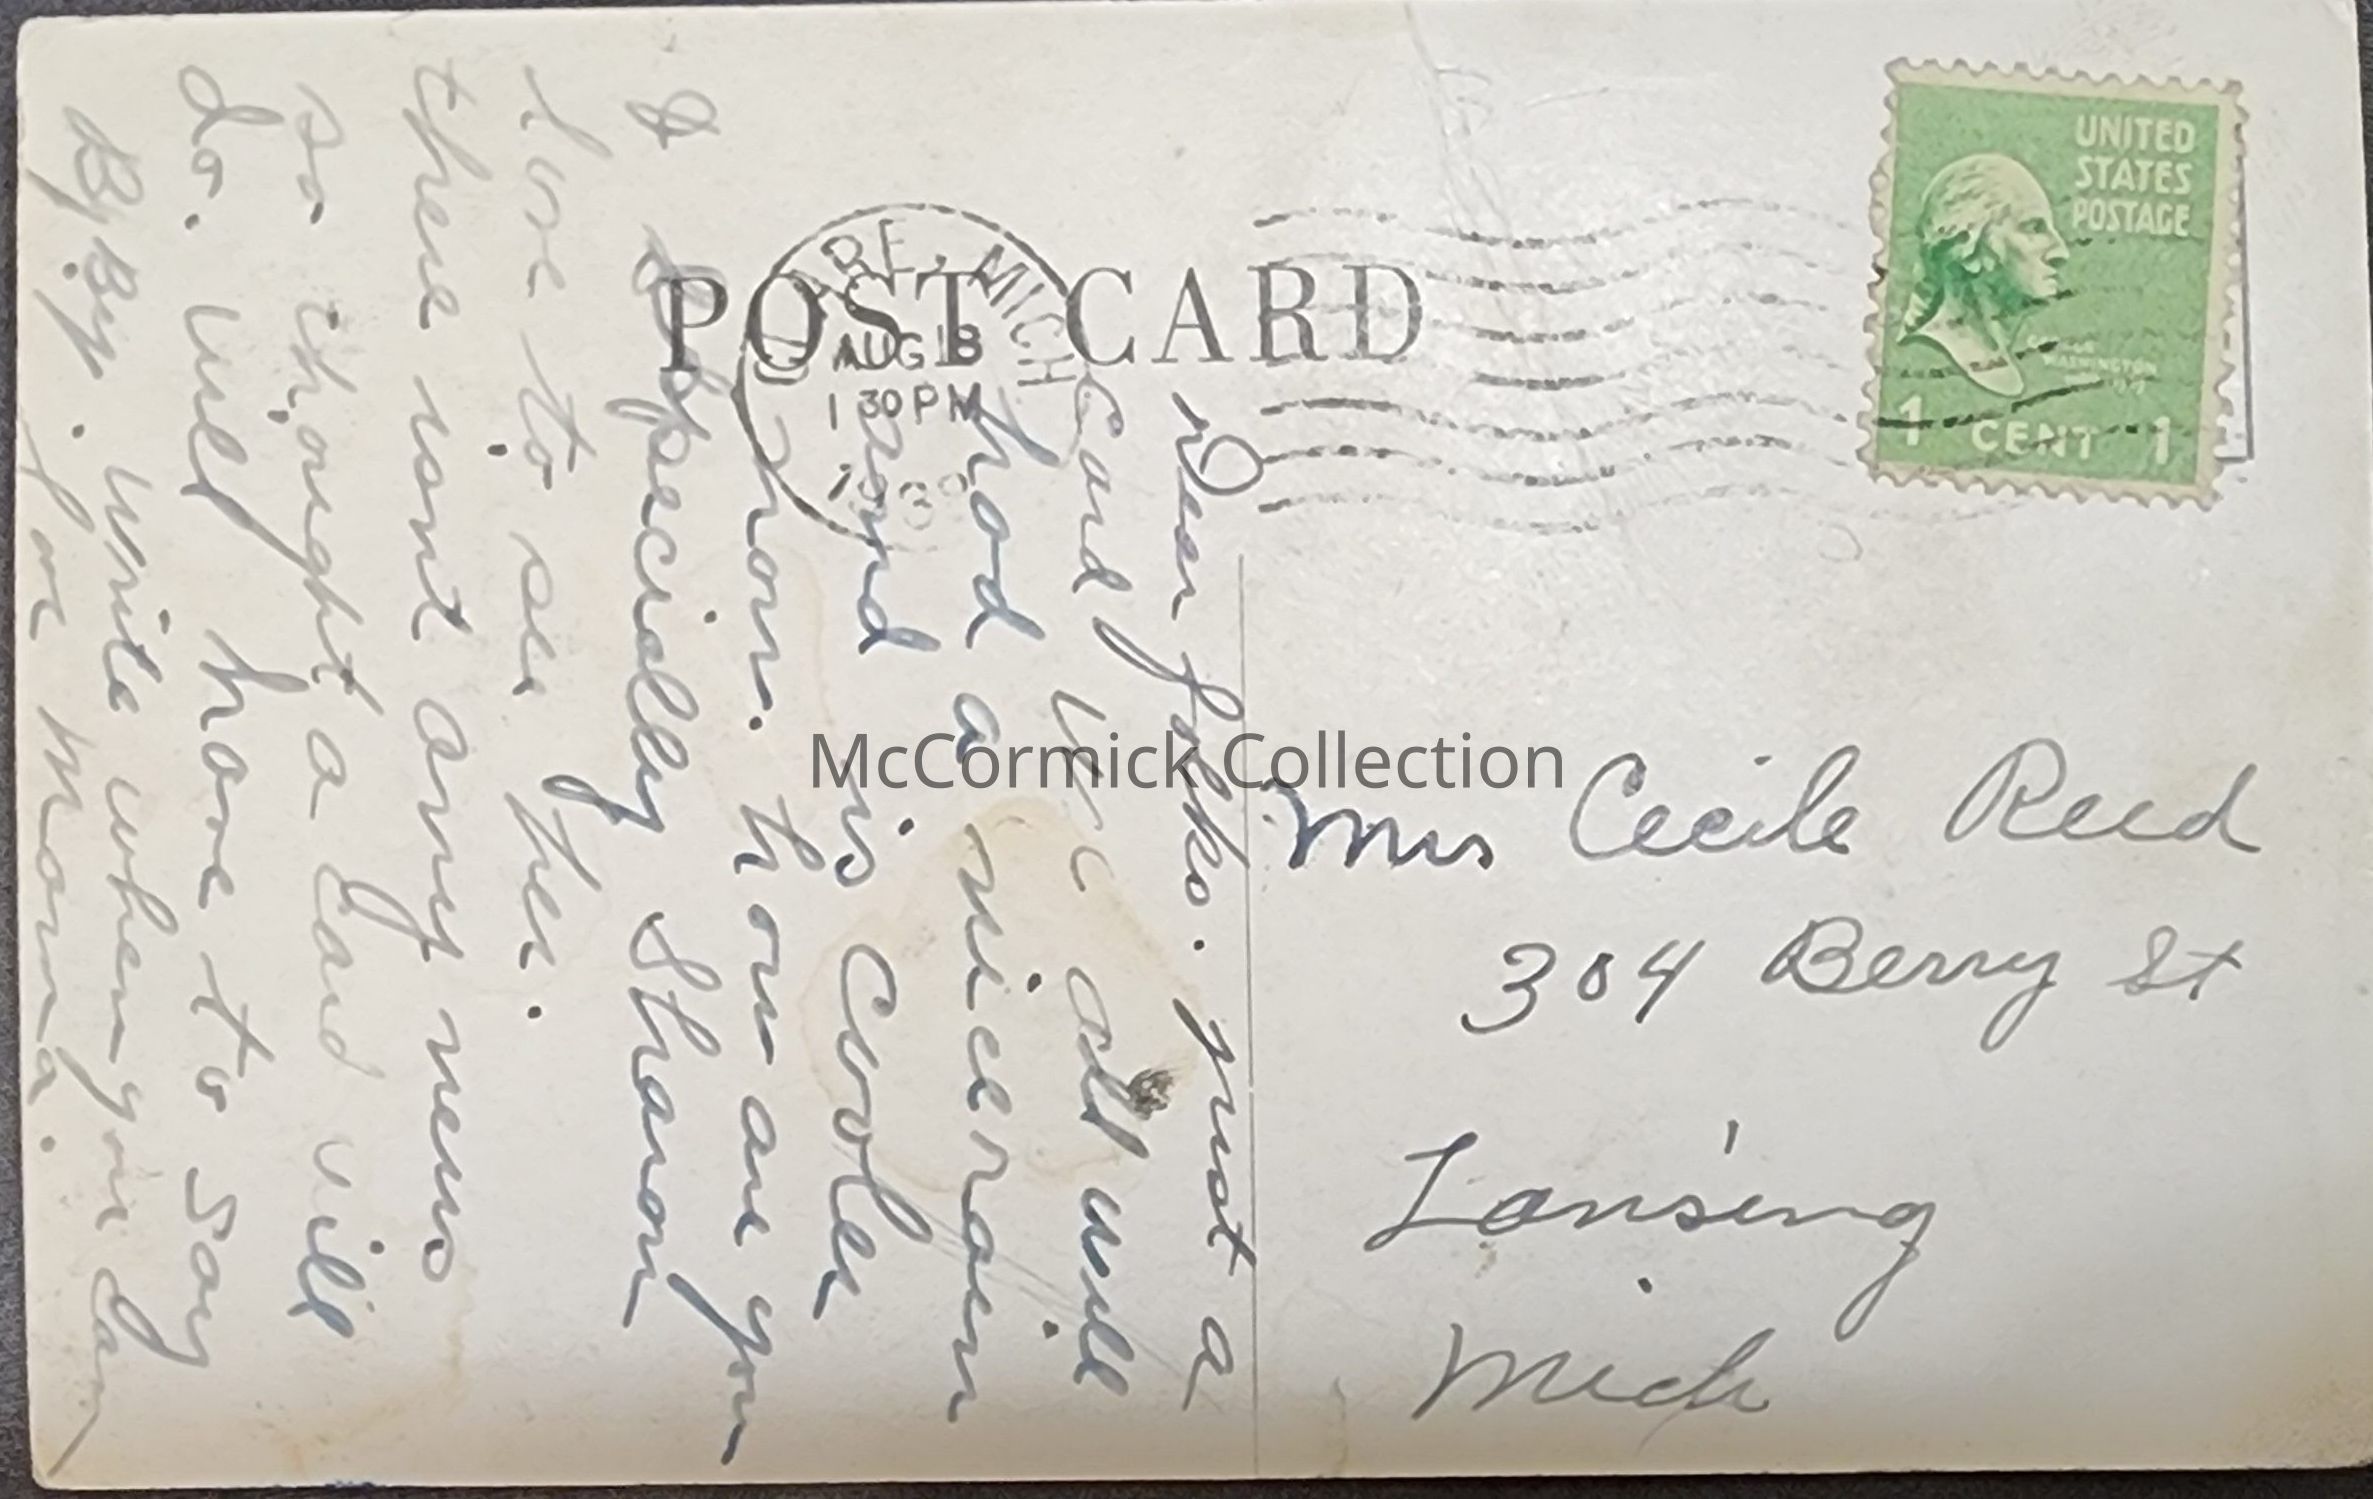 POST CARD
CLARE, MICH
AUG 18
1 30 PM
193
UNITED
STATES
POSTAGE
WASHINGTON
1 CENT 1
Dear folks. just a
Card we all well
had a nice rain
and is Cooler
now. how are you
especially Sharon
I
love to see her.
there isnt any news
so thought a Card will
do. will have to say
By By. write when you Can
Mom
Mrs Cecile Reed
304 Berry St
Lansing
Mich
McCormick Collection